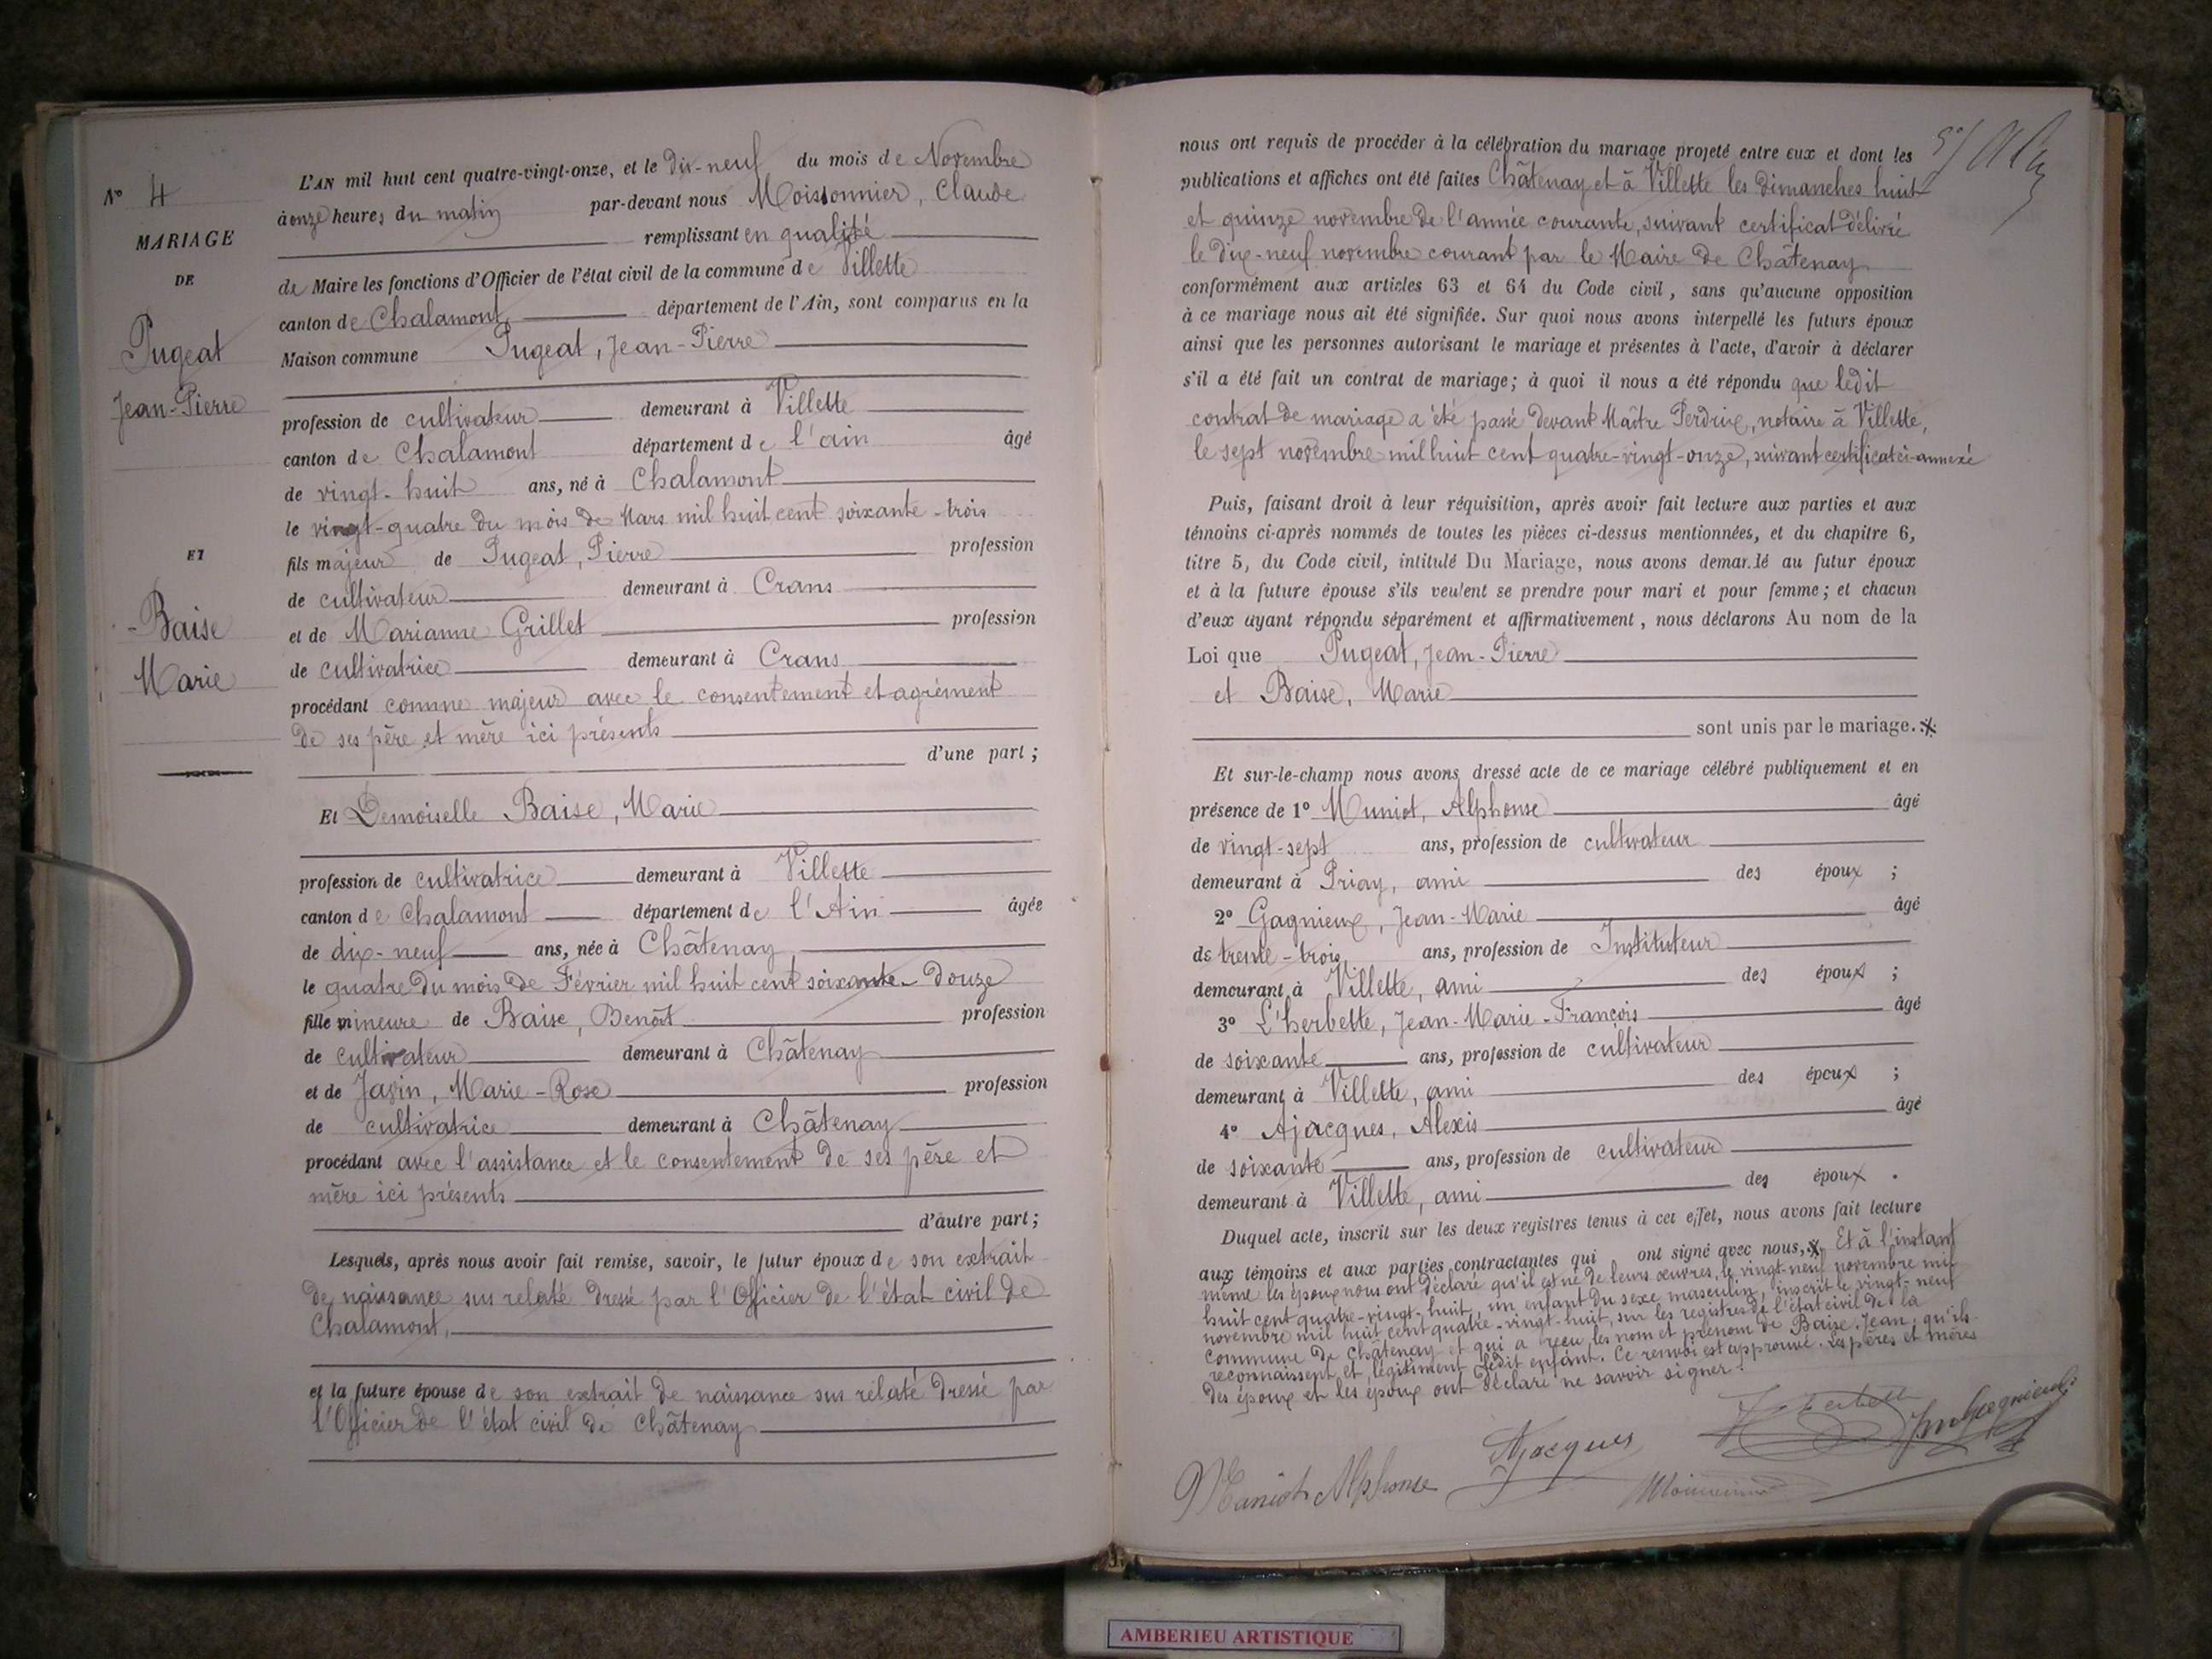 N° 4
MARIAGE
DE
Pugeat
Jean-Pierre
ET
Baise
Marie
L'AN mil huit cent quatre-vingt-onze, et le dix-neuf du mois de Novembre
à onze heures du matin par-devant nous Moissonnier, Claude
remplissant en qualité
de Maire les fonctions d'Officier de l'état civil de la commune de Villette
canton de Chalamont département de l'Ain, sont comparus en la
Maison commune Pugeat, Jean-Pierre
profession de cultivateur demeurant à Villette
canton de Chalamont département de l'ain âgé
de vingt-huit ans, né à Chalamont
le vingt-quatre du mois de Mars mil huit cent soixante-trois
fils majeur de Pugeat, Pierre profession
de cultivateur demeurant à Crans
et de Marianne Grillet profession
de cultivatrice demeurant à Crans
procédant comme majeur avec le consentement et agrément
de ses père et mère ici présents
d'une part;
Et Demoiselle Baise, Marie
profession de cultivatrice demeurant à Villette
canton de Chalamont département de l'Ain âgée
de dix-neuf ans, née à Châtenay
le quatre du mois de Février mil huit cent soixante-douze
fille mineure de Baise, Benoît profession
de cultivateur demeurant à Châtenay
et de Javin, Marie-Rose profession
de cultivatrice demeurant à Châtenay
procédant avec l'assistance et le consentement de ses père et
mère ici présents
d'autre part;
Lesquels, après nous avoir fait remise, savoir, le futur époux de son extrait
de naissance sus relaté dressé par l'Officier de l'état civil de
Chalamont,
et la future épouse de son extrait de naissance sus relaté dressé par
l'Officier de l'état civil de Châtenay
nous ont requis de procéder à la célébration du mariage projeté entre eux et dont les
publications et affiches ont été faites Châtenay et à Villette les dimanches huit
et quinze novembre de l'année courante, suivant certificat délivré
le dix-neuf novembre courant par le Maire de Châtenay
conformément aux articles 63 et 64 du Code civil, sans qu'aucune opposition
à ce mariage nous ait été signifiée. Sur quoi nous avons interpellé les futurs époux
ainsi que les personnes autorisant le mariage et présentes à l'acte, d'avoir à déclarer
s'il a été fait un contrat de mariage; à quoi il nous a été répondu que ledit
contrat de mariage a été passé devant Maître Perdrix, notaire à Villette,
le sept novembre mil huit cent quatre-vingt-onze, suivant certificat ci-annexé
Puis, faisant droit à leur réquisition, après avoir fait lecture aux parties et aux
témoins ci-après nommés de toutes les pièces ci-dessus mentionnées, et du chapitre 6,
titre 5, du Code civil, intitulé Du Mariage, nous avons demandé au futur époux
et à la future épouse s'ils veulent se prendre pour mari et pour femme; et chacun
d'eux ayant répondu séparément et affirmativement, nous déclarons Au nom de la
Loi que Pugeat, Jean-Pierre
et Baise, Marie
sont unis par le mariage.
Et sur-le-champ nous avons dressé acte de ce mariage célébré publiquement et en
présence de 1° Muniot, Alphonse âgé
de vingt-sept ans, profession de cultivateur
demeurant à Priay, ami des époux;
2° Gagnieux, Jean-Marie âgé
de trente-trois ans, profession de Instituteur
demeurant à Villette, ami des époux;
3° L'herbette, Jean-Marie-François âgé
de soixante ans, profession de cultivateur
demeurant à Villette, ami des époux;
4° Ajacques, Alexis âgé
de soixante ans, profession de cultivateur
demeurant à Villette, ami des époux.
Duquel acte, inscrit sur les deux registres tenus à cet effet, nous avons fait lecture
aux témoins et aux parties contractantes qui ont signé avec nous, Et à l'instant
même les époux nous ont déclaré qu'il est né de leurs œuvres, le vingt-neuf novembre mil
huit cent quatre-vingt-huit, un enfant du sexe masculin, inscrit le vingt-neuf
novembre mil huit cent quatre-vingt-huit, sur les registres de l'état civil de la
commune de Châtenay et qui a reçu les nom et prénom de Baise Jean; qu'ils
reconnaissent et légitiment ledit enfant. Ce renvoi est approuvé. Les pères et mères
des époux et les époux ont déclaré ne savoir signer.
Muniot Alphonse
Ajacques
AMBERIEU ARTISTIQUE